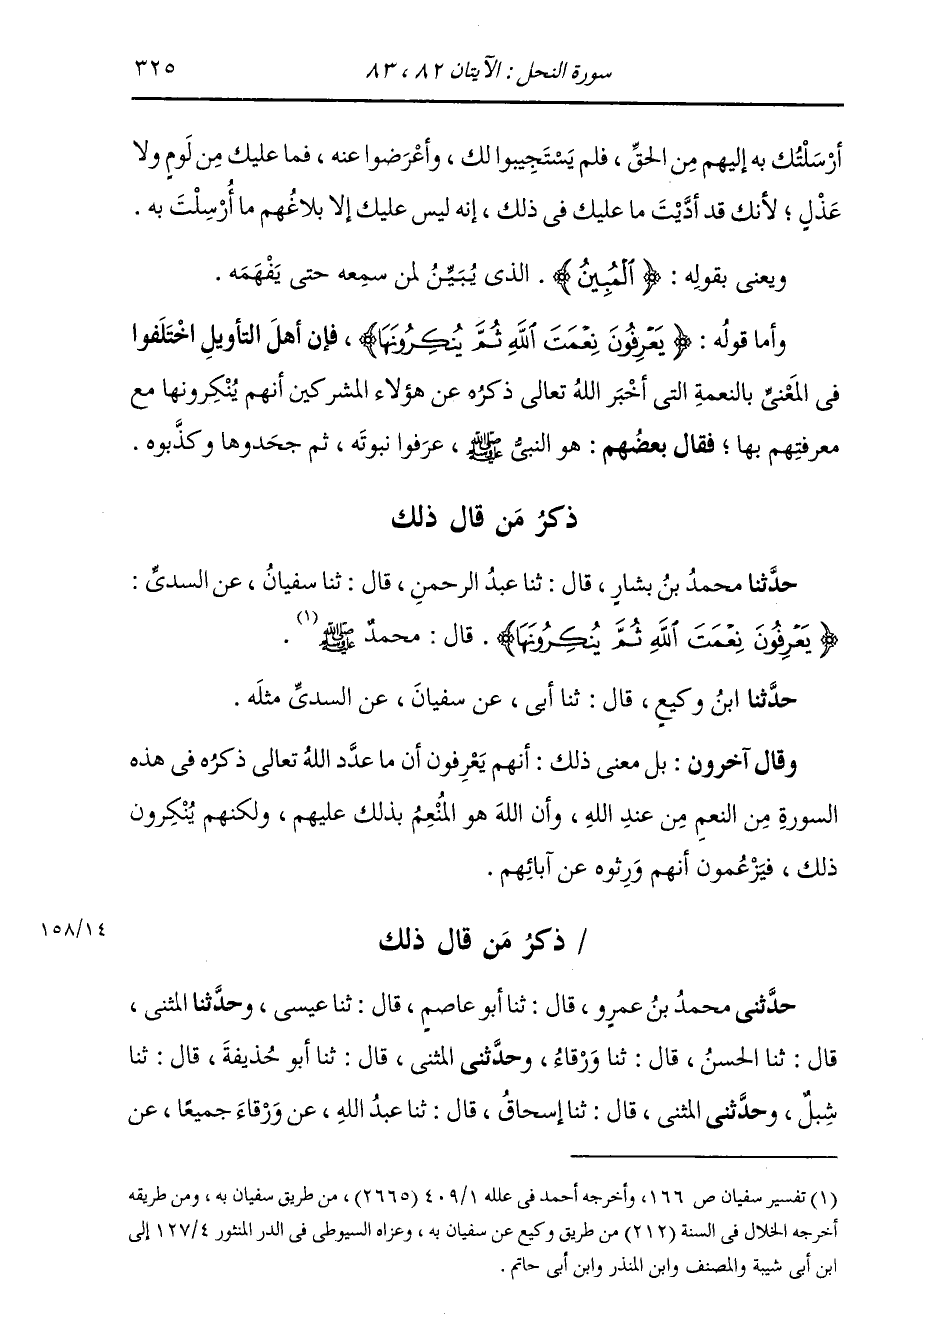 سورة النحل : الآيتان ٨٢ ، ٨٣
٣٢٥
أرْسَلْتُك به إليهم مِن الحقِّ ، فلم يَسْتَجِيبوا لك ، وأعْرَضوا عنه ، فما عليك مِن لَومٍ ولا
عَذْلٍ ؛ لأنك قد أدَّيْتَ ما عليك فى ذلك ، إنه ليس عليك إلا بلاغُهم ما أُرسِلْتَ به .
ويعنى بقولِه : ﴿ ٱلْمُبِينُ ﴾ . الذى يُبَيِّنُ لمن سمِعه حتى يَفْهَمَه .
وأما قولُه : ﴿ يَعْرِفُونَ نِعْمَتَ ٱللَّهِ ثُمَّ يُنكِرُونَهَا﴾ ، فإن أهلَ التأويلِ اخْتَلَفوا
فى المَعْنىِّ بالنعمةِ التى أخْبَر اللهُ تعالى ذكرُه عن هؤلاء المشركين أنهم يُنْكِرونها مع
معرفتِهم بها ؛ فقال بعضُهم : هو النبىُّ ﷺ ، عرَفوا نبوتَه ، ثم جحَدوها وكذَّبوه .
ذكرُ مَن قال ذلك
حدَّثنا محمدُ بنُ بشارٍ ، قال : ثنا عبدُ الرحمنِ ، قال : ثنا سفيانُ ، عن السدىِّ :
﴿ يَعْرِفُونَ نِعْمَتَ ٱللَّهِ ثُمَّ يُنكِرُونَهَا﴾ . قال : محمدٌ ﷺ (١) .
حدَّثنا ابنُ وكيعٍ ، قال : ثنا أبى ، عن سفيانَ ، عن السدىِّ مثلَه .
وقال آخرون : بل معنى ذلك : أنهم يَعْرِفون أن ما عدَّد اللهُ تعالى ذكرُه فى هذه
السورةِ مِن النعمِ مِن عندِ اللهِ ، وأن اللهَ هو المُنْعِمُ بذلك عليهم ، ولكنهم يُنْكِرون
ذلك ، فيَزْعُمون أنهم وَرِثوه عن آبائِهم .
/ ذكرُ مَن قال ذلك
١٥٨/١٤
حدَّثنى محمدُ بنُ عمرٍو ، قال : ثنا أبو عاصمٍ ، قال : ثنا عيسى ، وحدَّثنا المثنى ،
قال : ثنا الحسنُ ، قال : ثنا وَرْقاءُ ، وحدَّثنى المثنى ، قال : ثنا أبو حُذيفةَ ، قال : ثنا
شِبلٌ ، وحدَّثنى المثنى ، قال : ثنا إسحاقُ ، قال : ثنا عبدُ اللهِ ، عن وَرْقاءَ جميعًا ، عن
(١) تفسير سفيان ص ١٦٦، وأخرجه أحمد فى علله ٤٠٩/١ (٢٦٦٥) ، من طريق سفيان به ، ومن طريقه
أخرجه الخلال فى السنة (٢١٢) من طريق وكيع عن سفيان به ، وعزاه السيوطى فى الدر المنثور ١٢٧/٤ إلى
ابن أبى شيبة والمصنف وابن المنذر وابن أبى حاتم .